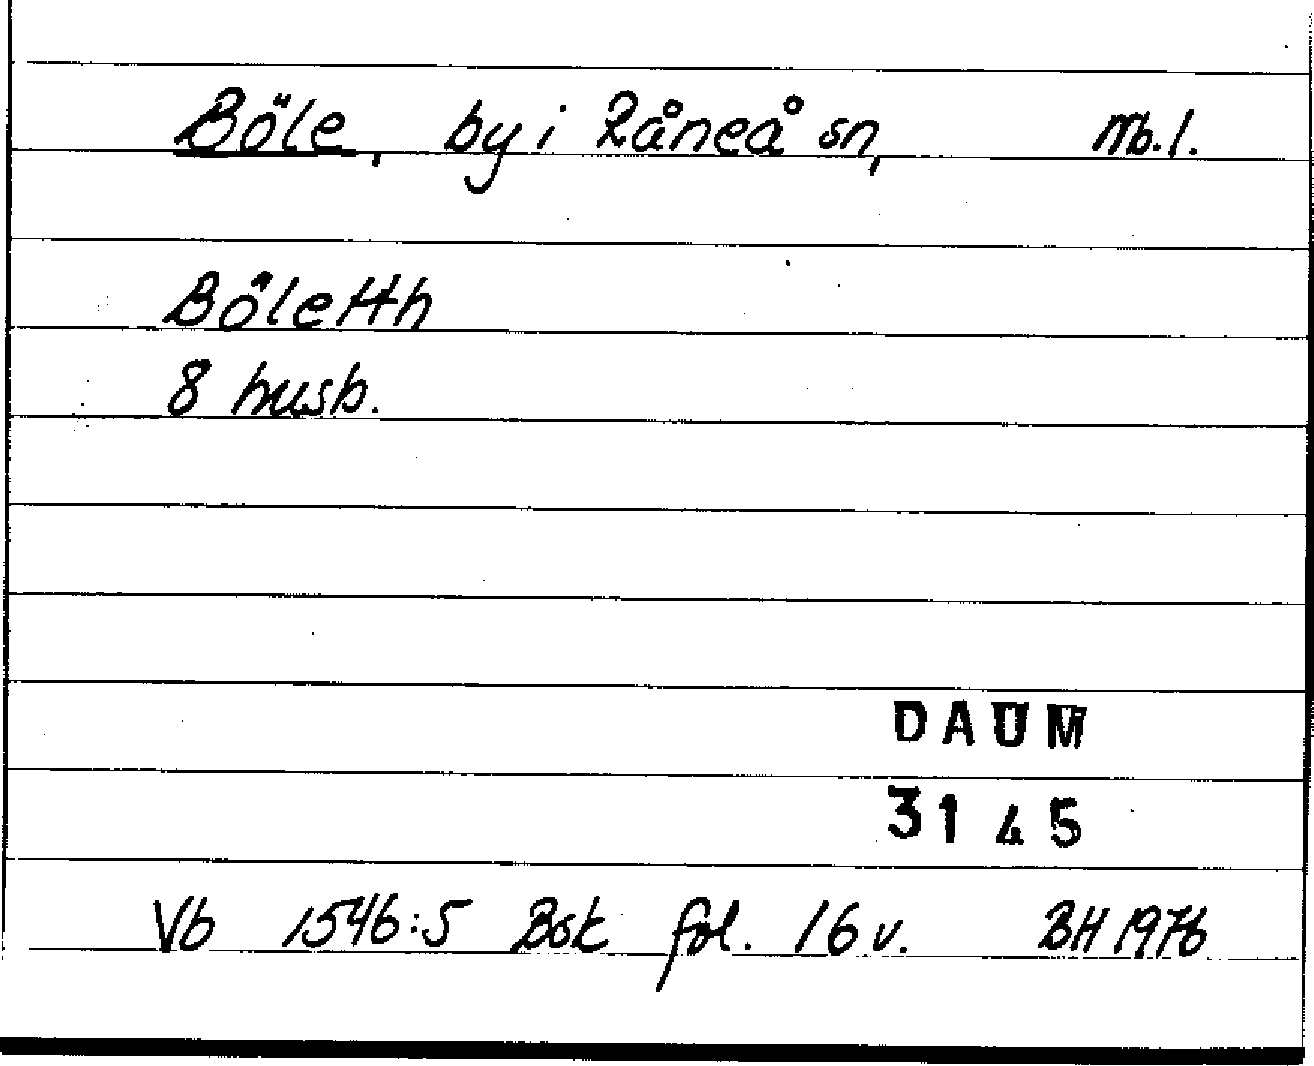 Böle, by i Råneå sn, Nb.l.
Böletth
8 husb.
DAUM
3145
Vb 1546:5 Bsk fol. 16 v. BH 1976